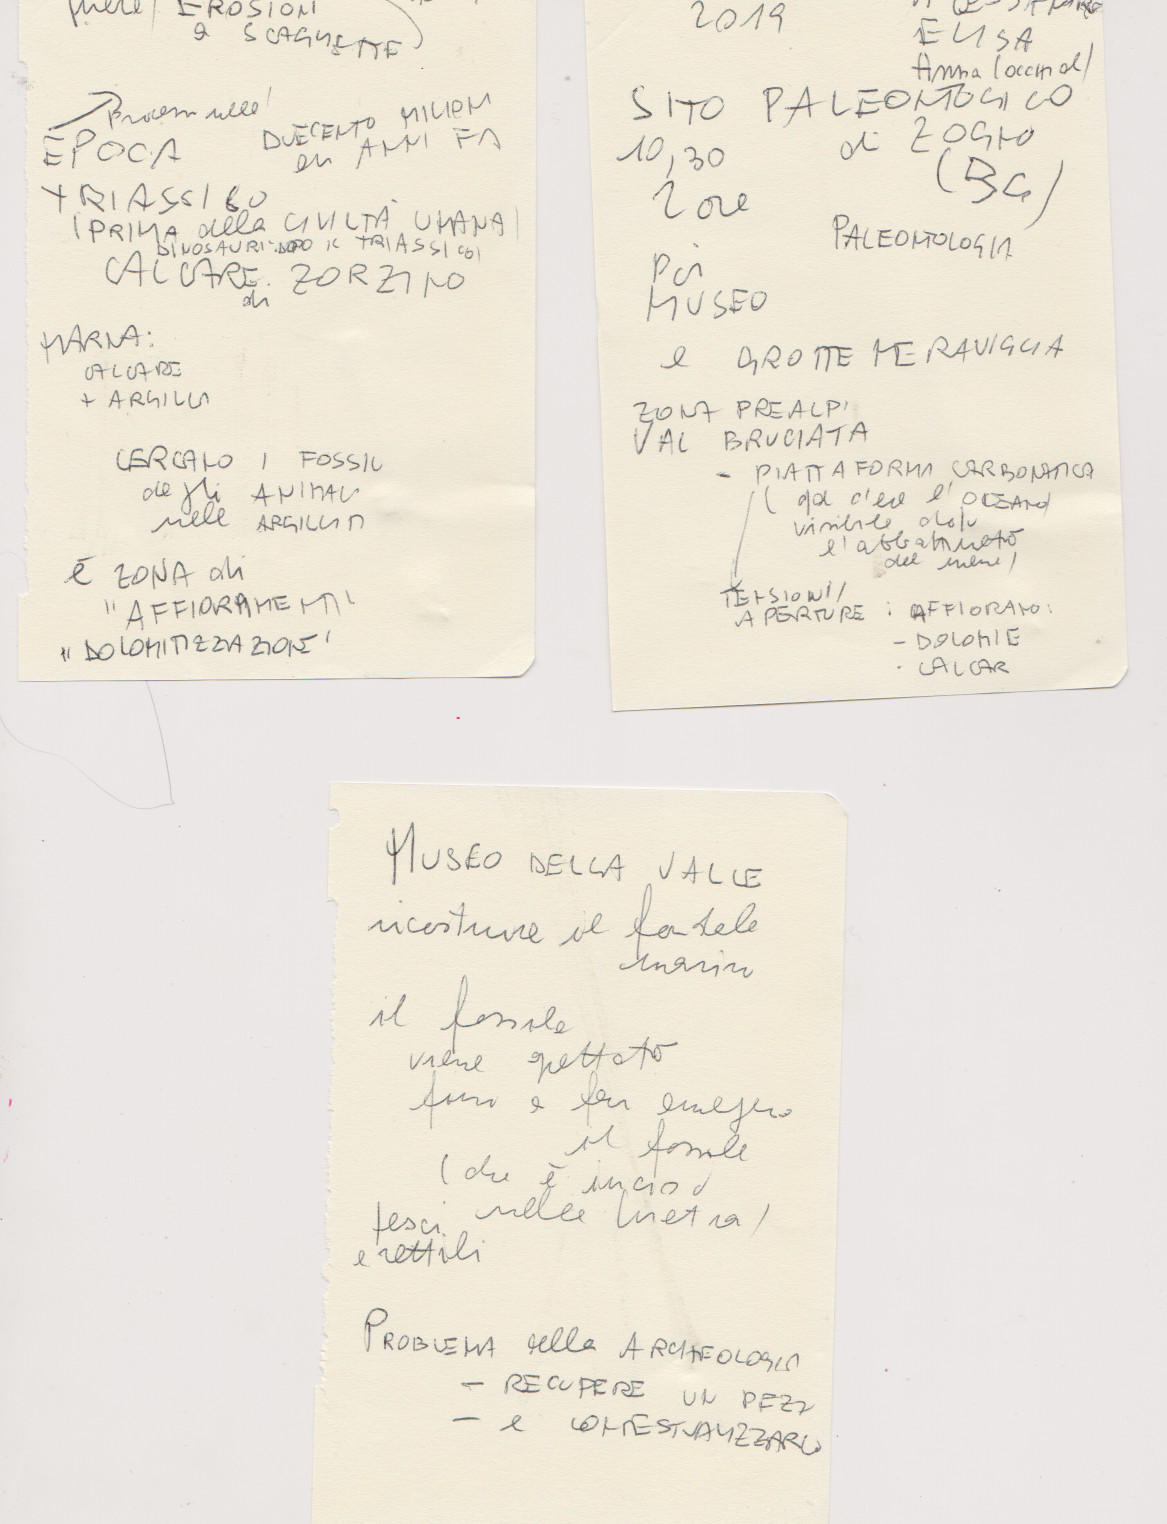 EROSIONI
a SCAGLIETTE
EPOCA
DUECENTO MILIONI
di ANNI FA
TRIASSICO
(PRIMA della CIVILTÀ UMANA)
DINOSAURI: DOPO IL TRIASSICO)
CALCARE di ZORZINO
MARNA:
CALCARE
+ ARGILLA
CERCANO I FOSSILI
degli ANIMALI
nelle
è ZONA di
"AFFIORAMENTI"
"DOLOMITIZZAZIONE"
2019
ELISA
Anna
SITO PALEONTOLOGICO
di ZOGNO
(BG)
10,30
2 ore
PALEONTOLOGIA
Poi
MUSEO
e GROTTE MERAVIGLIA
ZONA PREALPI
VAL BRUCIATA
- PIATTAFORMA CARBONATICA
(qui c'era l'OCEANO
visibile dopo
del mare)
TENSIONI/
APERTURE: AFFIORANO:
- DOLOMIE
- CALCARI
MUSEO DELLA VALLE
ricostruire il fondale
marino
il fossile
viene
fino a far emergere
il fossile
(che è inciso
nella pietra)
pesci
e rettili
PROBLEMA della ARCHEOLOGIA
- RECUPERE UN PEZZO
- e CONTESTUALIZZARLO